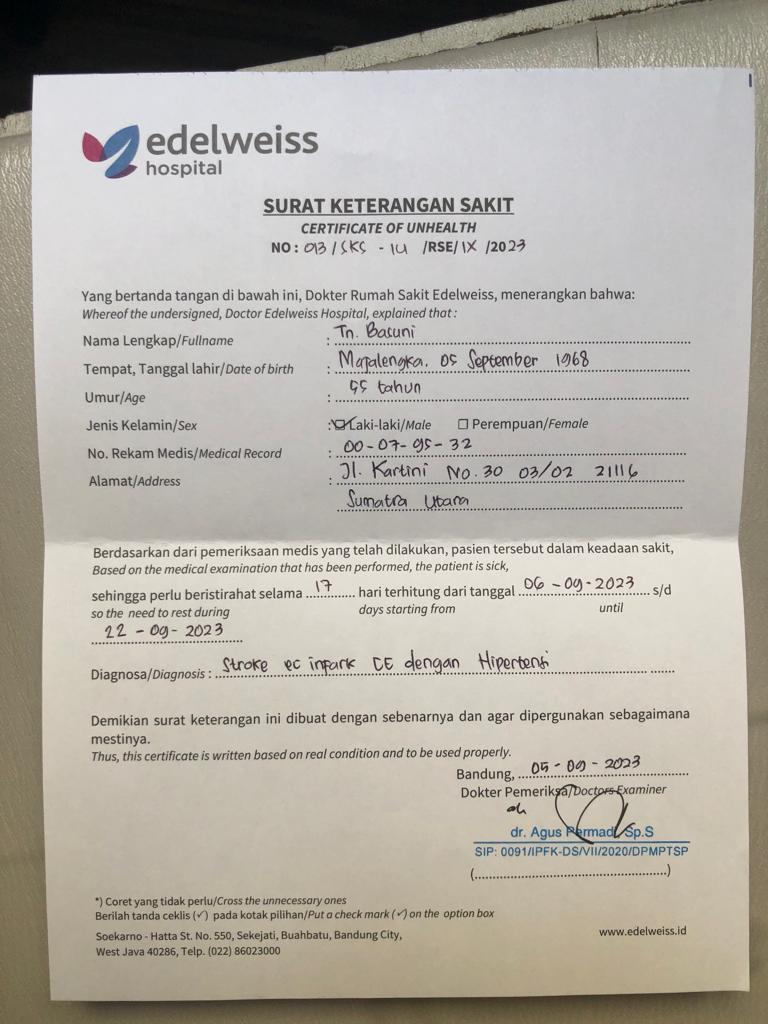 edelweiss
hospital
SURAT KETERANGAN SAKIT
CERTIFICATE OF UNHEALTH
NO : 013 / SKS - IU /RSE/ IX /2023
Yang bertanda tangan di bawah ini, Dokter Rumah Sakit Edelweiss, menerangkan bahwa:
Whereof the undersigned, Doctor Edelweiss Hospital, explained that :
Nama Lengkap/Fullname : Tn. Basuni
Tempat, Tanggal lahir/Date of birth : Majalengka, 05 September 1968
Umur/Age : 55 tahun
Jenis Kelamin/Sex : ☑ Laki-laki/Male ☐ Perempuan/Female
No. Rekam Medis/Medical Record : 00-07-95-32
Alamat/Address : Jl. Kartini No. 30 03/02 21116
Sumatra Utara
Berdasarkan dari pemeriksaan medis yang telah dilakukan, pasien tersebut dalam keadaan sakit,
Based on the medical examination that has been performed, the patient is sick,
sehingga perlu beristirahat selama 17 hari terhitung dari tanggal 06-09-2023 s/d
so the need to rest during days starting from until
22-09-2023
Diagnosa/Diagnosis : Stroke ec inpark CE dengan Hipertensi
Demikian surat keterangan ini dibuat dengan sebenarnya dan agar dipergunakan sebagaimana
mestinya.
Thus, this certificate is written based on real condition and to be used properly.
Bandung, 05-09-2023
Dokter Pemeriksa/Doctors Examiner
dr. Agus Permadi, Sp.S
SIP: 0091/IPFK-DS/VII/2020/DPMPTSP
(........................................)
*) Coret yang tidak perlu/Cross the unnecessary ones
Berilah tanda ceklis (✓) pada kotak pilihan/Put a check mark (✓) on the option box
Soekarno - Hatta St. No. 550, Sekejati, Buahbatu, Bandung City,
West Java 40286, Telp. (022) 86023000
www.edelweiss.id